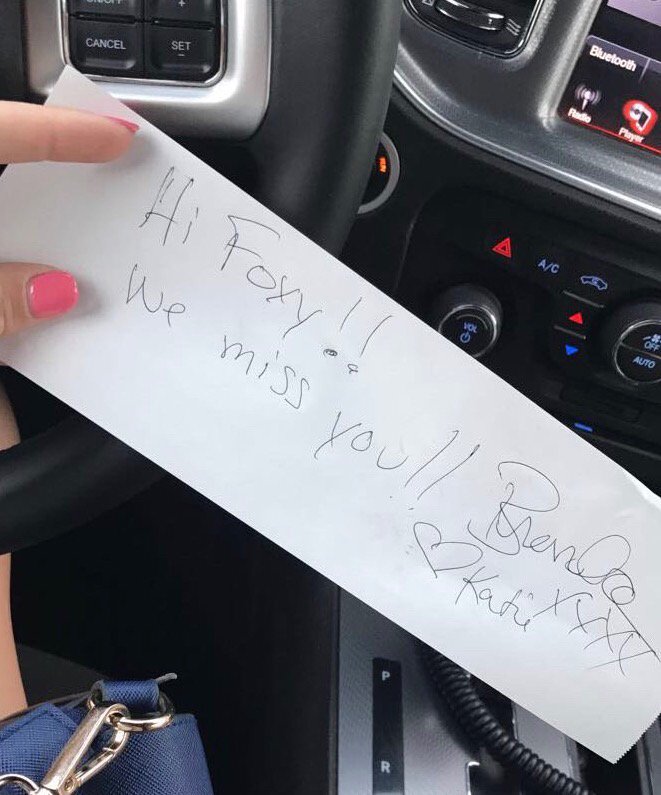 ON/OFF
+
CANCEL
SET
-
Bluetooth
Radio
Player
RUN
A/C
VOL
OFF
AUTO
Hi Foxy!!
We miss you!! Brenda
♡ Katie XXXX
P
R